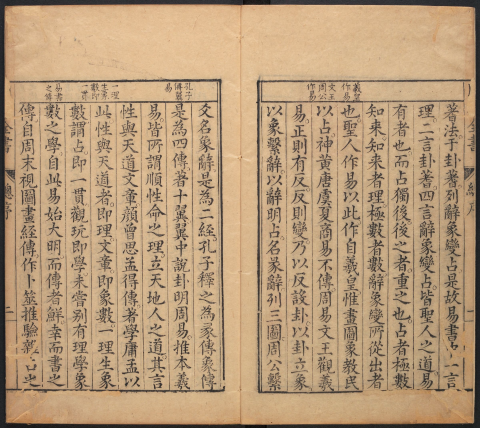 蓍法于卦蓍列辭象變占是故易書中一言
理二言卦蓍四言辭象變占皆聖人之道易
有者也而占獨後後之者重之也占者極數
知來知來者理極數者數辭象變所從出者
也聖人作易以此作自羲皇惟畫圖象教民
以占神黄唐虞夏商易不傳周易文王觀羲
易正則有反反則變乃以反設卦以卦立象
以象繫辭以辭明占名彖辭列三圖周公繫
羲皇作易
文王周公作易
爻名象辭是為二經孔子釋之為彖傳象傳
是為四傳著十翼翼中說卦明周易推本羲
易皆所謂順性命之理立天地人之道其言
性與天道文章顏曾思孟得傳著學庸孟以
此性與天道者即理文章即象數一理生象
數謂占即一貫觀玩即學未嘗別有理學象
數之學自此易始大明而傳者鮮幸而書之
傳自周末視圖畫經傳作卜筮推驗雜占之
孔子傳翼易
一理生象數即一貫
易書之傳
全書
總序
二